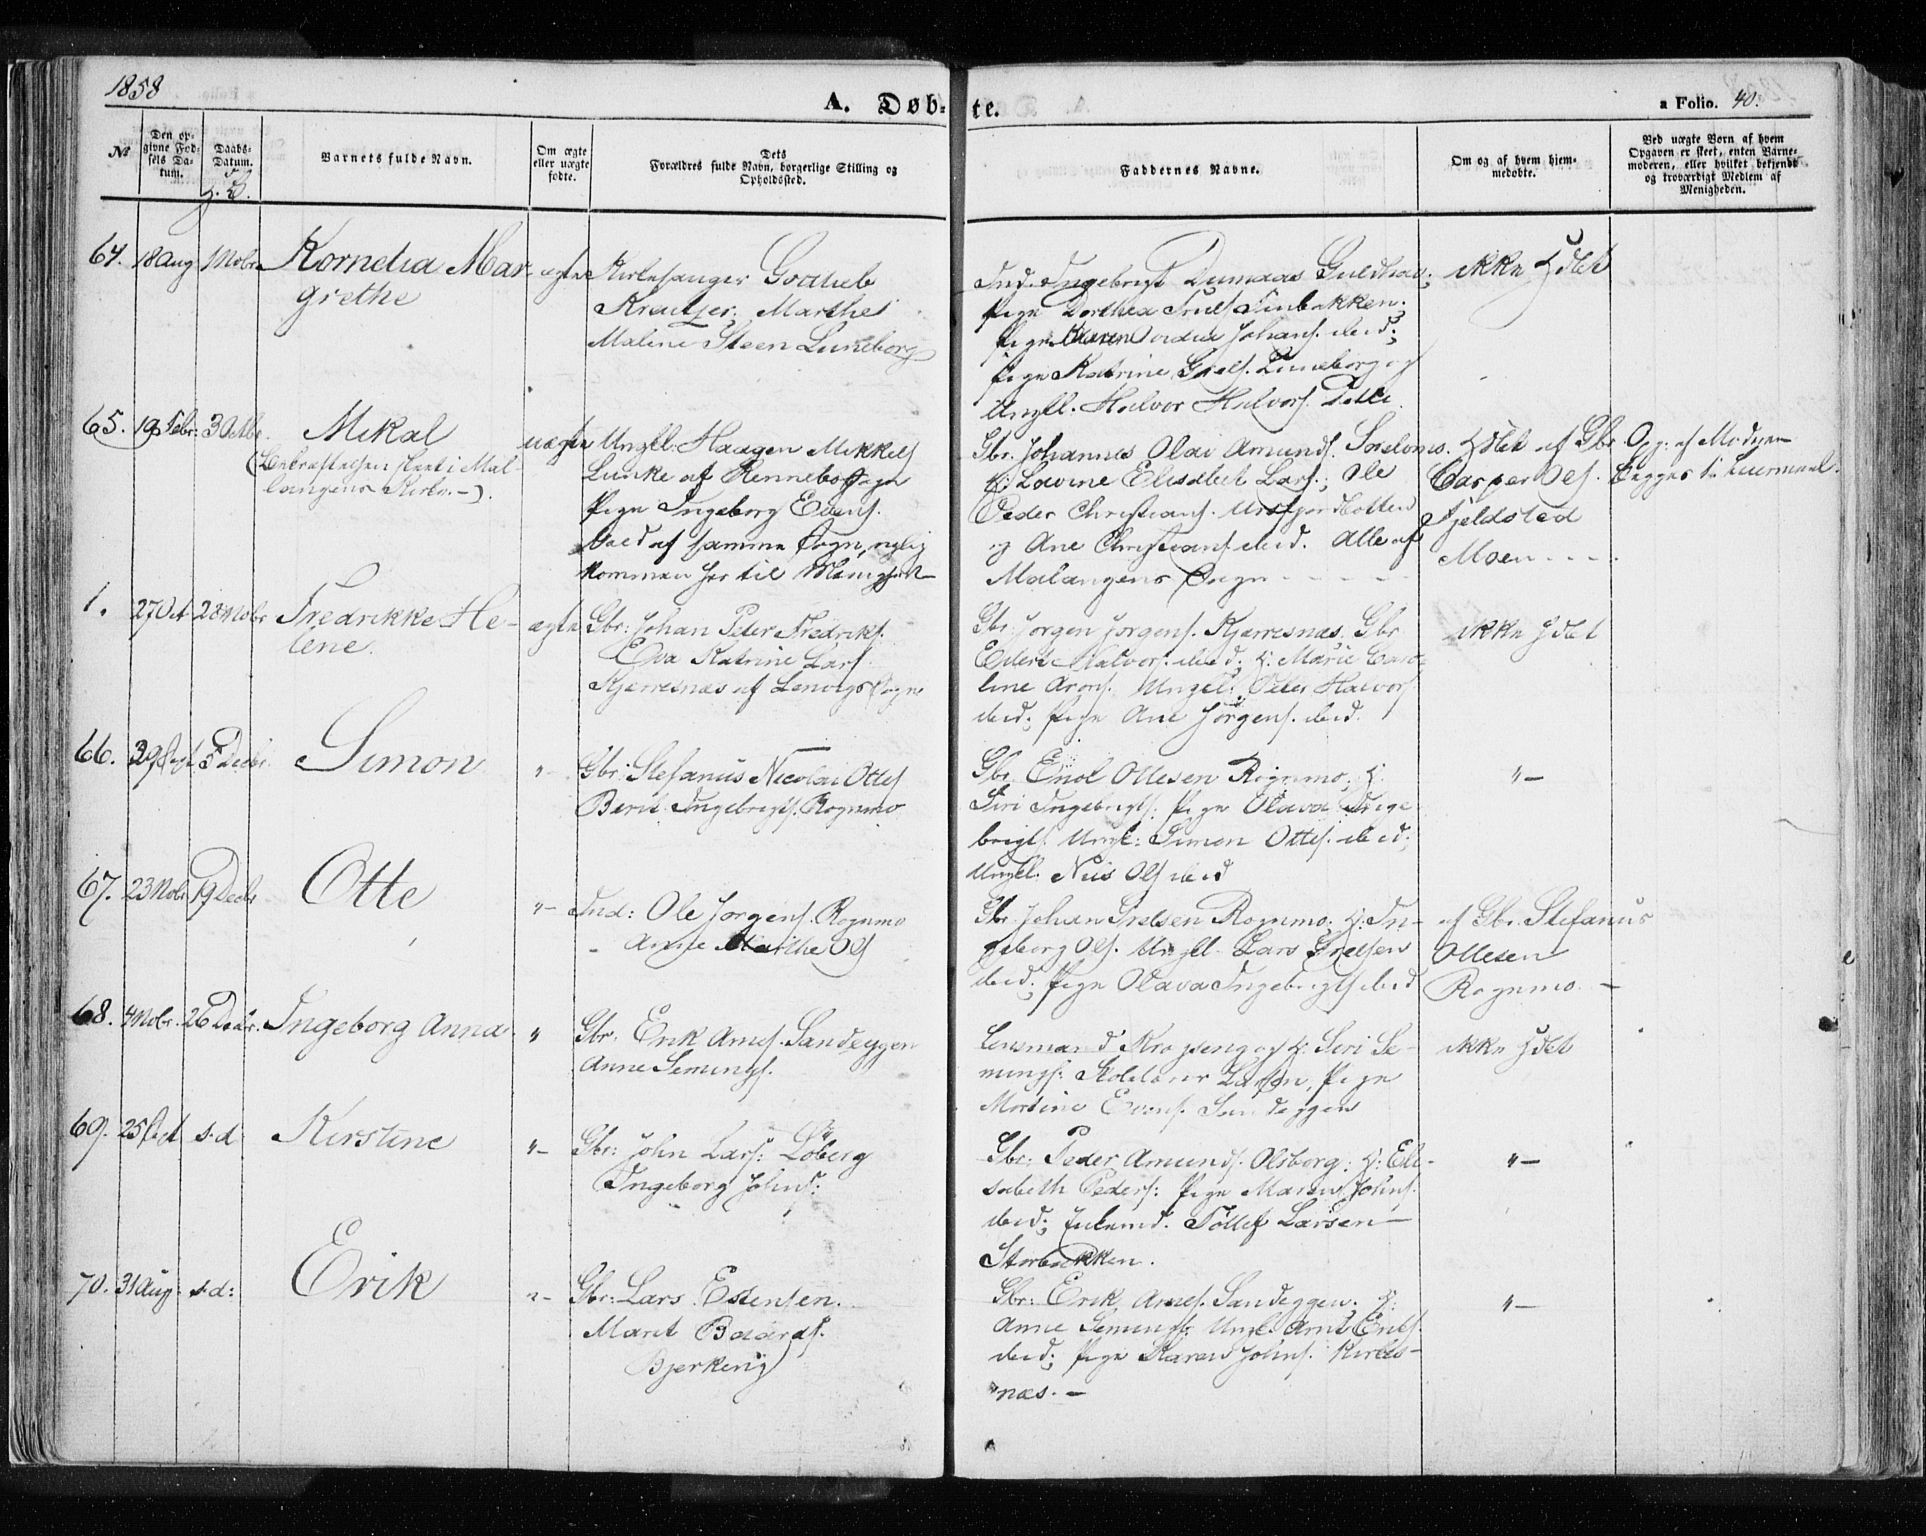 1858
A. Døb-
te.
a Folio. 40.
№
Den op-
givne Fød-
sels Da-
tum.
Daabs-
Datum.
Barnets fulde Navn.
Om ægte
eller uægte
fødte.
Dets
Forældres fulde Navn, borgerlige Stilling og
Opholdsted.
Faddernes Navne.
Om og af hvem hjem-
medøbte.
Ved uægte Børn af hvem
Opgaven er skeet, enten Barne-
moderen, eller hvilket bekjendt
og troværdigt Medlem af
Menigheden.
64. 18 Aug 1 Nobr Kornelia Mar-
grethe
ægte Kirkesanger Gotlieb
Kreutzer, Marthe
Maline Steen Luneborg
Ind. Ingebrigt Dumaas Guldhav;
Pige Dorthea Truls.
Pige Karen Johans. ibid;
Pige Katrine Luneborg og
Ungkl. Halvor Halvors.
ikke Hdbt
65. 19 Febr: 3 Octbr. Mikal
(Bekræftelsen skeet i Mal-
langens Kirke.-).
uægte Ungkl. Haagen Mikkels
Lunke af Rennebo Sogn
Pige Ingeborg Evens.
af samme Sogn, nylig
kommen her til
Gbr. Johannes Olai Amunds.
H: Lovine Elisabet Lars.; Ole
Peder Christians.
og Ane Christians. ibid. Alle af
Malangens Sogn - - - - -
Hdbt af Gbr.
Casper Ols.
Fjeldsted
Moen - - - -
Opg: af Moderen
Begges 1ste Leiermaal.
1. 27 Oct 28 Nobr Fredrikke He-
lene.
ægte Gbr: Johan Peter Fredriks.
Eva Katrine Lars.
Kjerresnæs af Lenvigs Sogn
Gbr. Jørgen Jørgens. Kjerresnæs. Gbr
Eilert Halvors. ibid; H. Marie Caro-
line Arons. Ungkl. Peder Halvors.
ibid; Pige Ane Jørgens. ibid.
ikke Hdbt
66. 29 Sept 5 Decbr. Simon
"- Gbr: Stefanus Nicolai Ottes
Berit Ingebrigts. Rognmo
Gbr. Enol Ottesen Rognmo; H.
Siri Ingebrigts. Pige Olava Inge
brigts. Ungk: Simon Ottes. ibid;
Ungkl. Nils Ols ibid
"-
67. 23 Nobr 19 Decbr Otte
"- Ind: Ole Jørgens. Rognmo
- Anne Marthe Ols
Gbr. Johan Rognmo; H: In-
geborg Ols. Ungkl. Lars
ibid; Pige Olava Ingebrigts ibid
af Gbr. Stefanus
Ottesen
Rognmo. -
68. 4 Nobr. 26 Decbr. Ingeborg Anna
" Gbr. Erik Arnes. Sandeggen
Anne Semings.
Lensmand Krogseng og H. Siri Se-
mings. Skolelærer Larsen, Pige
Martine Evens. Sandeggen
ikke Hdbt
69. 25 Sept s.d Kirstine
"- Gbr: John Lars: Løberg
Ingeborg Johns:
Gbr: Peder Amunds. Olsborg; H: Eli-
sabeth Peders: Pige Maren Johns.
ibid; Tollef Larsen
Storbakken.
"-
70. 31 Aug: s.d: Erik
"- Gbr: Lars Estensen.
Marit Baards.
Bjerkeng
Gbr: Erik Arnes. Sandeggen; H:
Anne Semings. Ungk. Arnt Eriks.
ibid; Pige Karen Johns. Kirkes-
næs. -
"-